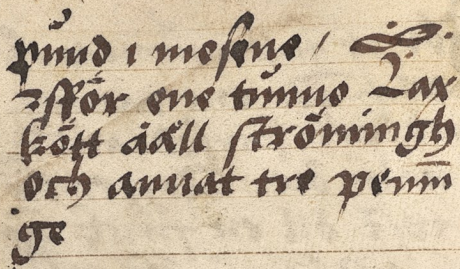 pund i mesene /
ffför ene tunno Lax
kött ääll strömingh
och annat tre penni
ge